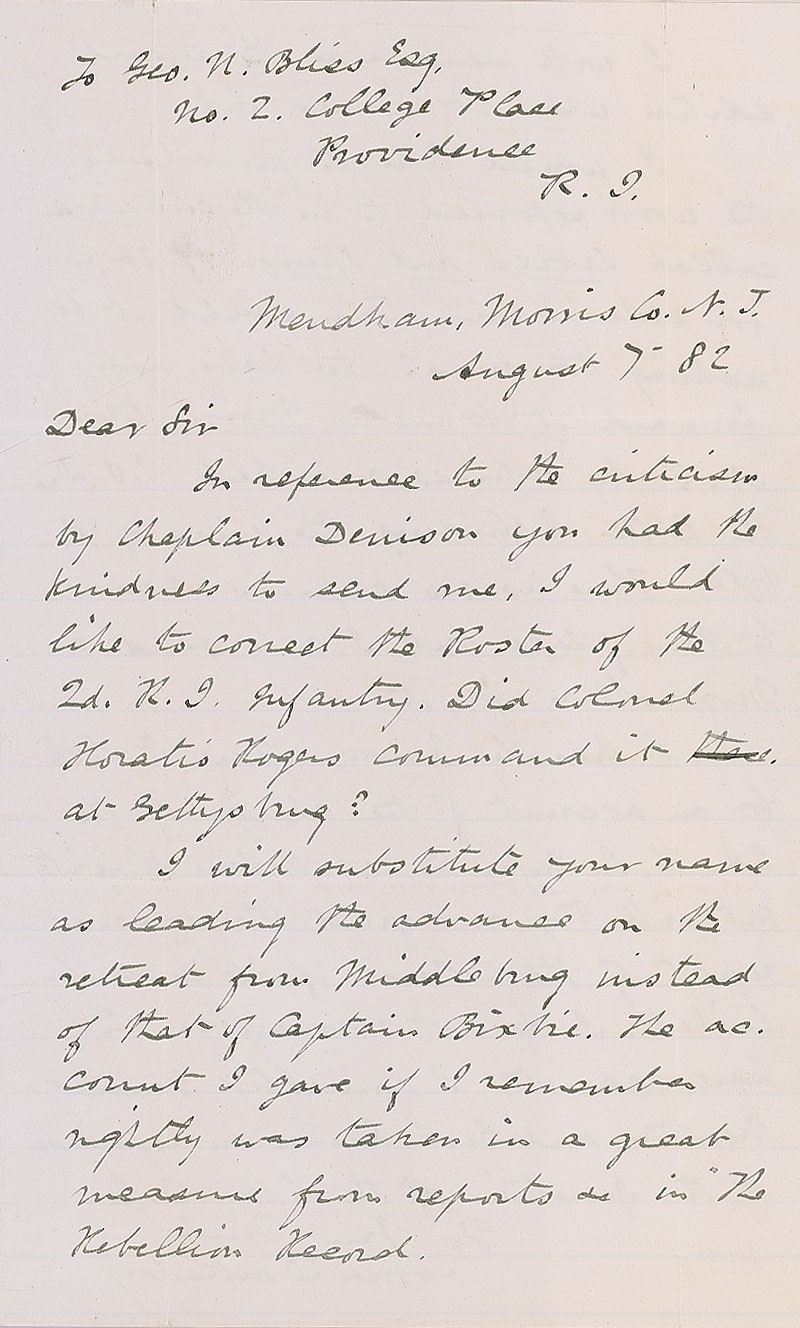 To Geo. N. Bliss Esq.
No. 2. College Place
Providence
R. I.
Mendham, Morris Co. N. J.
August 7 82
Dear Sir
In reference to the criticism
by Chaplain Denison you had the
kindness to send me, I would
like to correct the Roster of the
2d. R. I. Infantry. Did Colonel
Horatio Rogers command it
at Gettysburg?
I will substitute your name
as leading the advance on the
retreat from Middleburg instead
of that of Captain Bixbie. The ac.
count I gave if I remember
rightly was taken in a great
measure from reports in "The
Rebellion Record.